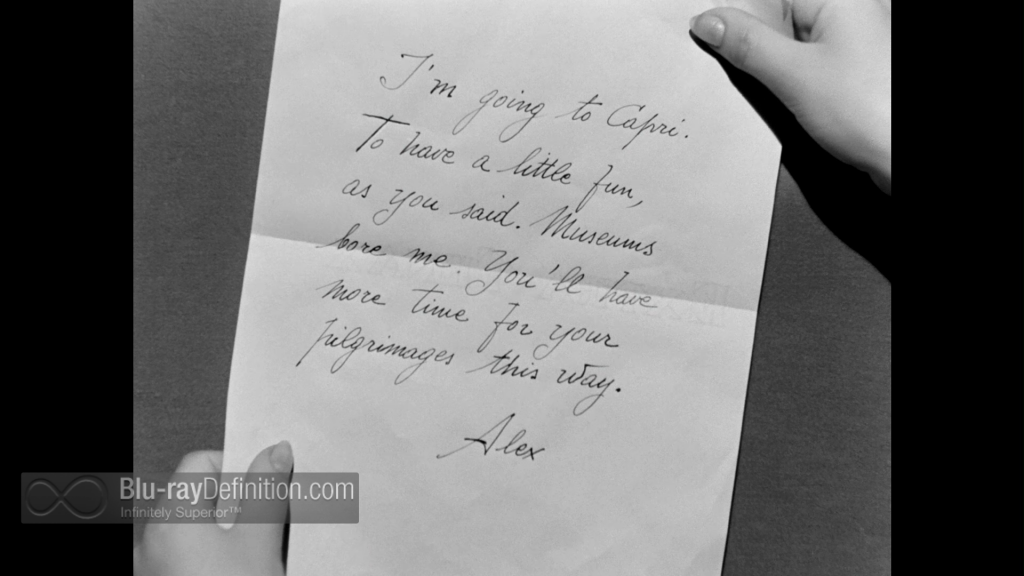 I'm going to Capri.
To have a little fun,
as you said. Museums
bore me. You'll have
more time for your
pilgrimages this way.
Alex
Blu-rayDefinition.com
Infinitely Superior™